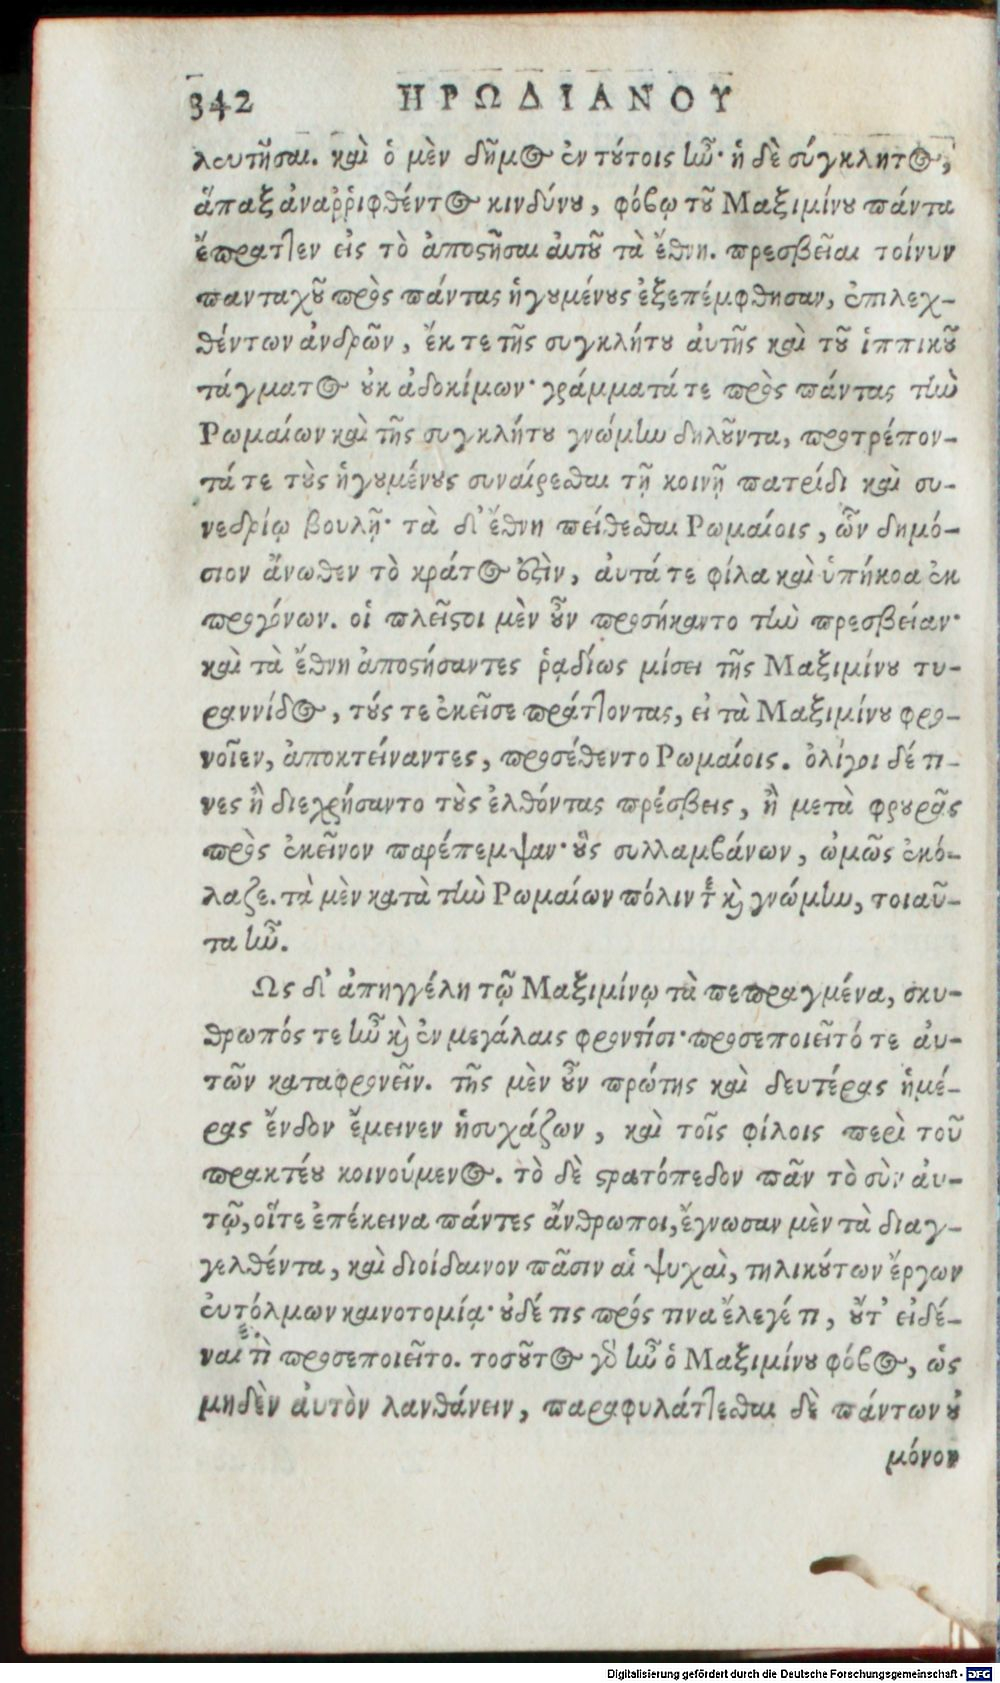 342 ΗΡΩΔΙΑΝΟΥ
λευτῆσαι. καὶ ὁ μὲν δῆμος ἐν τούτοις ἦν· ἡ δὲ σύγκλητος,
ἅπαξ ἀναῤῥιφθέντος κινδύνου, φόβῳ τοῦ Μαξιμίνου πάντα
ἔπραττεν εἰς τὸ ἀποστῆσαι αὐτοῦ τὰ ἔθνη. πρεσβεῖαι τοίνυν
πανταχοῦ πρὸς πάντας ἡγουμένους ἐξεπέμφθησαν, ἐπιλεχ-
θέντων ἀνδρῶν, ἔκ τε τῆς συγκλήτου αὐτῆς καὶ τοῦ ἱππικοῦ
τάγματος οὐκ ἀδοκίμων· γράμματά τε πρὸς πάντας τὴν
Ρωμαίων καὶ τῆς συγκλήτου γνώμην δηλοῦντα, προτρέπον-
τά τε τοὺς ἡγουμένους συναίρεσθαι τῇ κοινῇ πατρίδι καὶ συ-
νεδρίῳ βουλῇ· τὰ δ' ἔθνη πείθεσθαι Ρωμαίοις, ὧν δημό-
σιον ἄνωθεν τὸ κράτος ἐστὶν, αὐτά τε φίλα καὶ ὑπήκοα ἐκ
προγόνων. οἱ πλεῖστοι μὲν οὖν προσήκαντο τὴν πρεσβείαν·
καὶ τὰ ἔθνη ἀποστήσαντες ῥᾳδίως μίσει τῆς Μαξιμίνου τυ-
ραννίδος, τούς τε ἐκεῖσε πράττοντας, εἰ τὰ Μαξιμίνου φρο-
νοῖεν, ἀποκτείναντες, προσέθεντο Ρωμαίοις. ὀλίγοι δέ τι-
νες ἢ διεχρήσαντο τοὺς ἐλθόντας πρέσβεις, ἢ μετὰ φρουρᾶς
πρὸς ἐκεῖνον παρέπεμψαν· οὓς συλλαμβάνων, ὠμῶς ἐκό-
λαζε. τὰ μὲν κατὰ τὴν Ρωμαίων πόλιν τε καὶ γνώμην, τοιαῦ-
τα ἦν.
Ως δ' ἀπηγγέλη τῷ Μαξιμίνῳ τὰ πεπραγμένα, σκυ-
θρωπός τε ἦν καὶ ἐν μεγάλαις φροντίσι· προσεποιεῖτό τε αὐ-
τῶν καταφρονεῖν. τῆς μὲν οὖν πρώτης καὶ δευτέρας ἡμέ-
ρας ἔνδον ἔμεινεν ἡσυχάζων, καὶ τοῖς φίλοις περὶ τοῦ
πρακτέου κοινούμενος. τὸ δὲ στρατόπεδον πᾶν τὸ σὺν αὐ-
τῷ, οἵ τε ἐπέκεινα πάντες ἄνθρωποι, ἔγνωσαν μὲν τὰ διαγ-
γελθέντα, καὶ διοίδαινον πᾶσιν αἱ ψυχαὶ, τηλικούτων ἔργων
εὐτόλμων καινοτομίᾳ· οὐδέ τις πρός τινα ἔλεγέ τι, οὔτ' εἰδέ-
ναι τὶ προσεποιεῖτο. τοσοῦτος γὰρ ἦν ὁ Μαξιμίνου φόβος, ὡς
μηδὲν αὐτὸν λανθάνειν, παραφυλάττεσθαι δὲ πάντων οὐ
μόνον
Digitalisierung gefördert durch die Deutsche Forschungsgemeinschaft - DFG